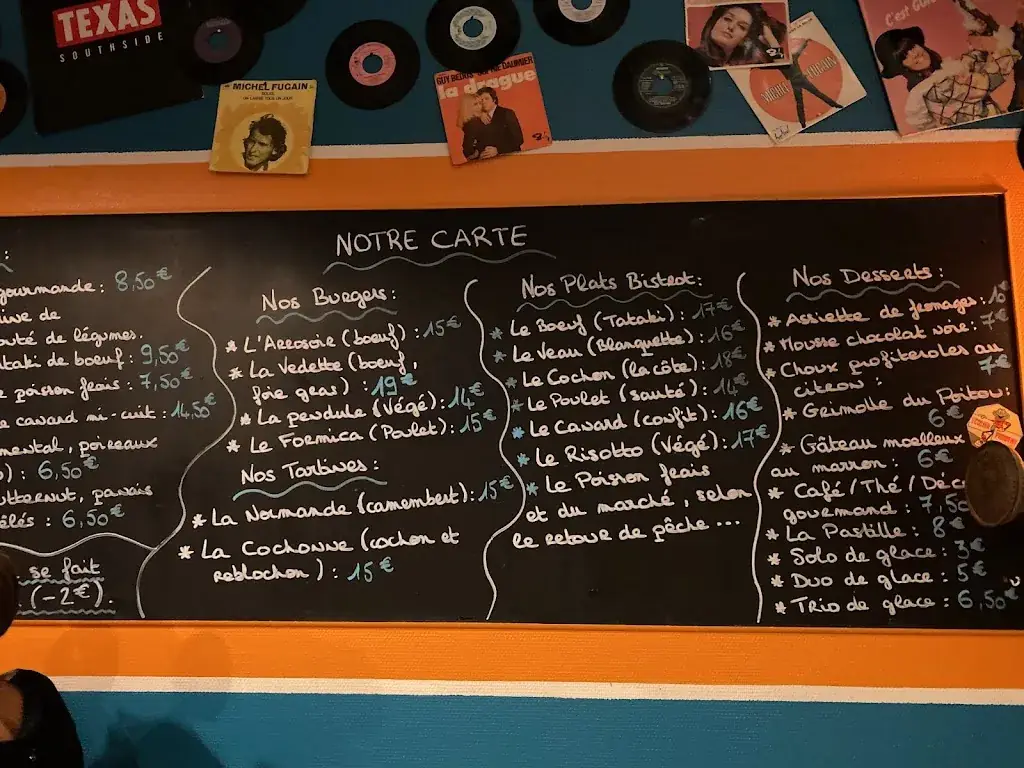 TEXAS
SOUTHSIDE
MICHEL FUGAIN
GUY BEDOS
la drague
MICHEL FUGAIN
C'est
NOTRE CARTE
:
gourmande : 8,50€
ive de
outé de légumes.
ataki de boeuf : 9,50€
e poisson frais : 7,50€
e canard mi-cuit : 14,50€
mental, poireaux
) : 6,50€
utternut, panais
êlés : 6,50€
se fait
(-2€).
Nos Burgers :
* L'Arrosoir (boeuf) : 15€
* La Vedette (boeuf,
foie gras) : 19€
* La pendule (Végé) : 14€
* Le Formica (Poulet) : 15€
Nos Tartines :
* La Normande (camembert) : 15€
* La Cochonne (cochon et
reblochon) : 15€
Nos Plats Bistrot :
* Le Boeuf (Tataki) : 17€
* Le Veau (Blanquette) : 16€
* Le Cochon (la côte) : 18€
* Le Poulet (sauté) : 14€
* Le Canard (confit) : 16€
* Le Risotto (Végé) : 17€
* Le Poisson frais
et du marché, selon
le retour de pêche ...
Nos Desserts :
* Assiette de fromages :
* Mousse chocolat noire : 7€
* Choux profiteroles au
citron : 7€
* Grimolle du Poitou :
6€
* Gâteau moelleux
au marron : 6€
* Café / Thé / Déca
gourmand : 7,50
* La Pastille : 8€
* Solo de glace : 3€
* Duo de glace : 5€
* Trio de glace : 6,50€